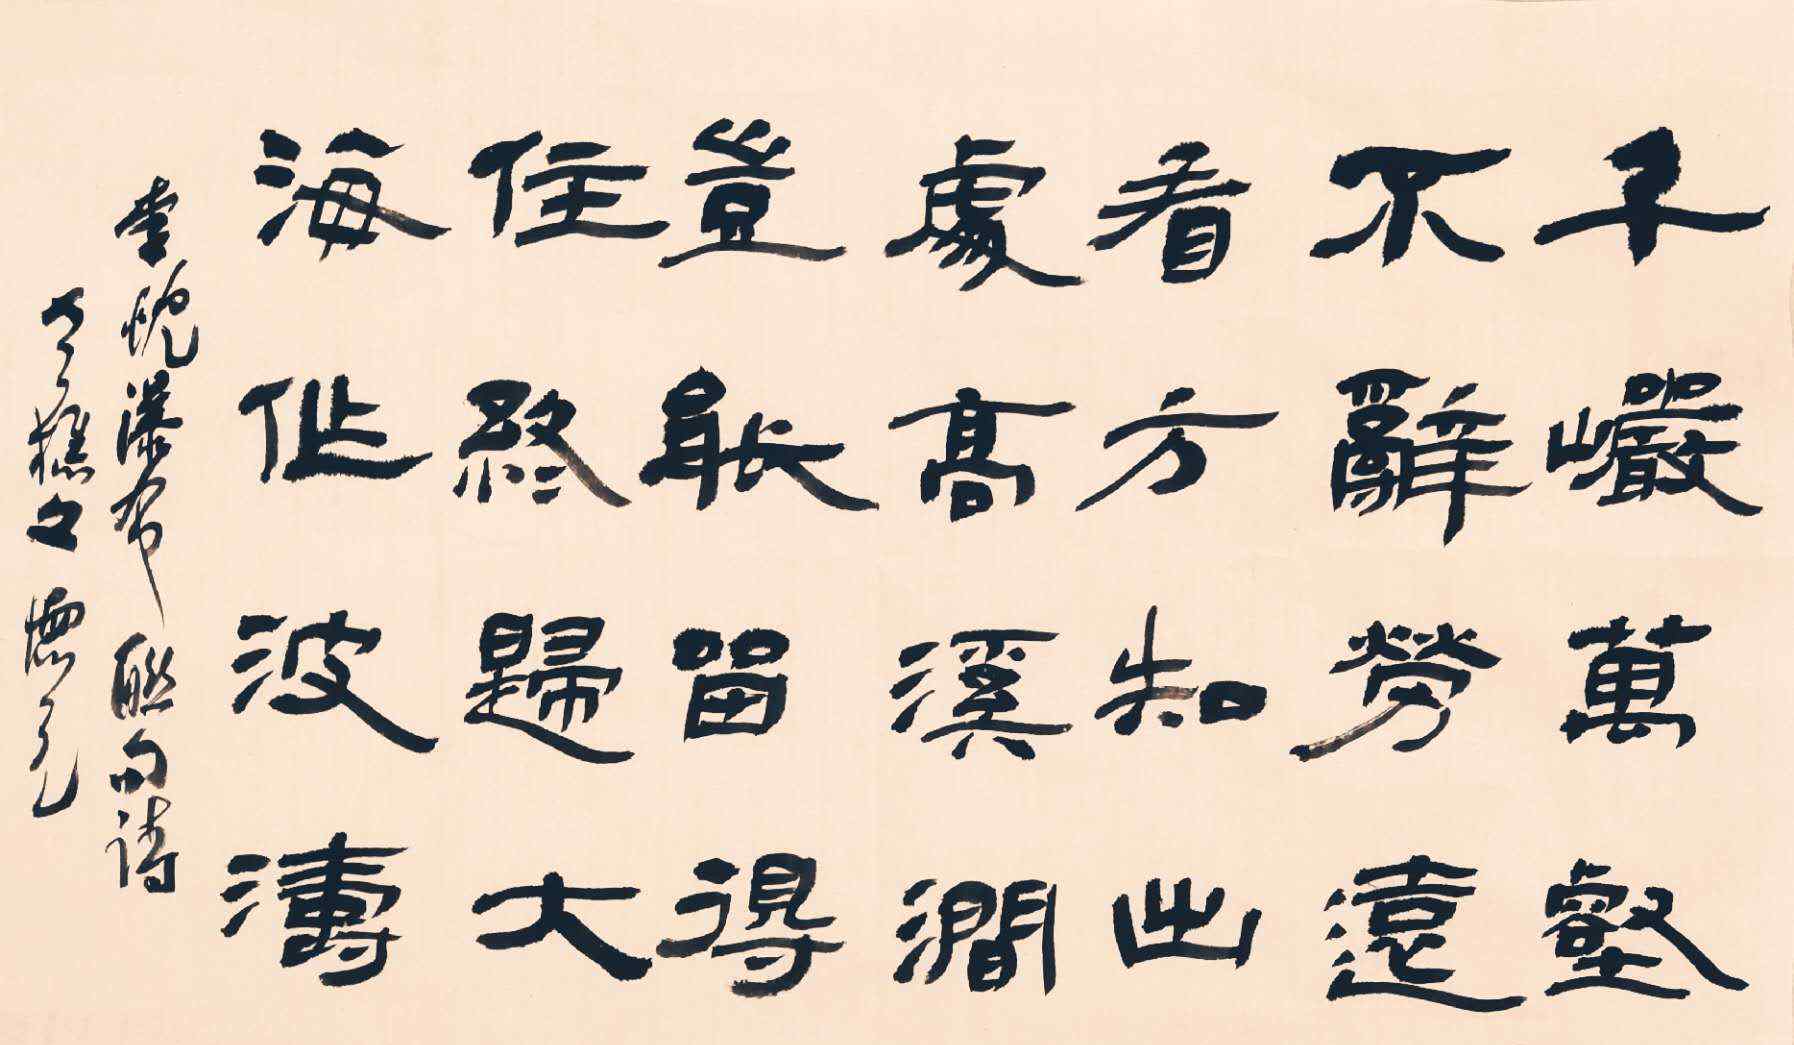 千巖萬壑
不辭勞遠
看方知出
處高溪澗
豈能留得
住終歸大
海作波濤
李忱瀑布聯句詩